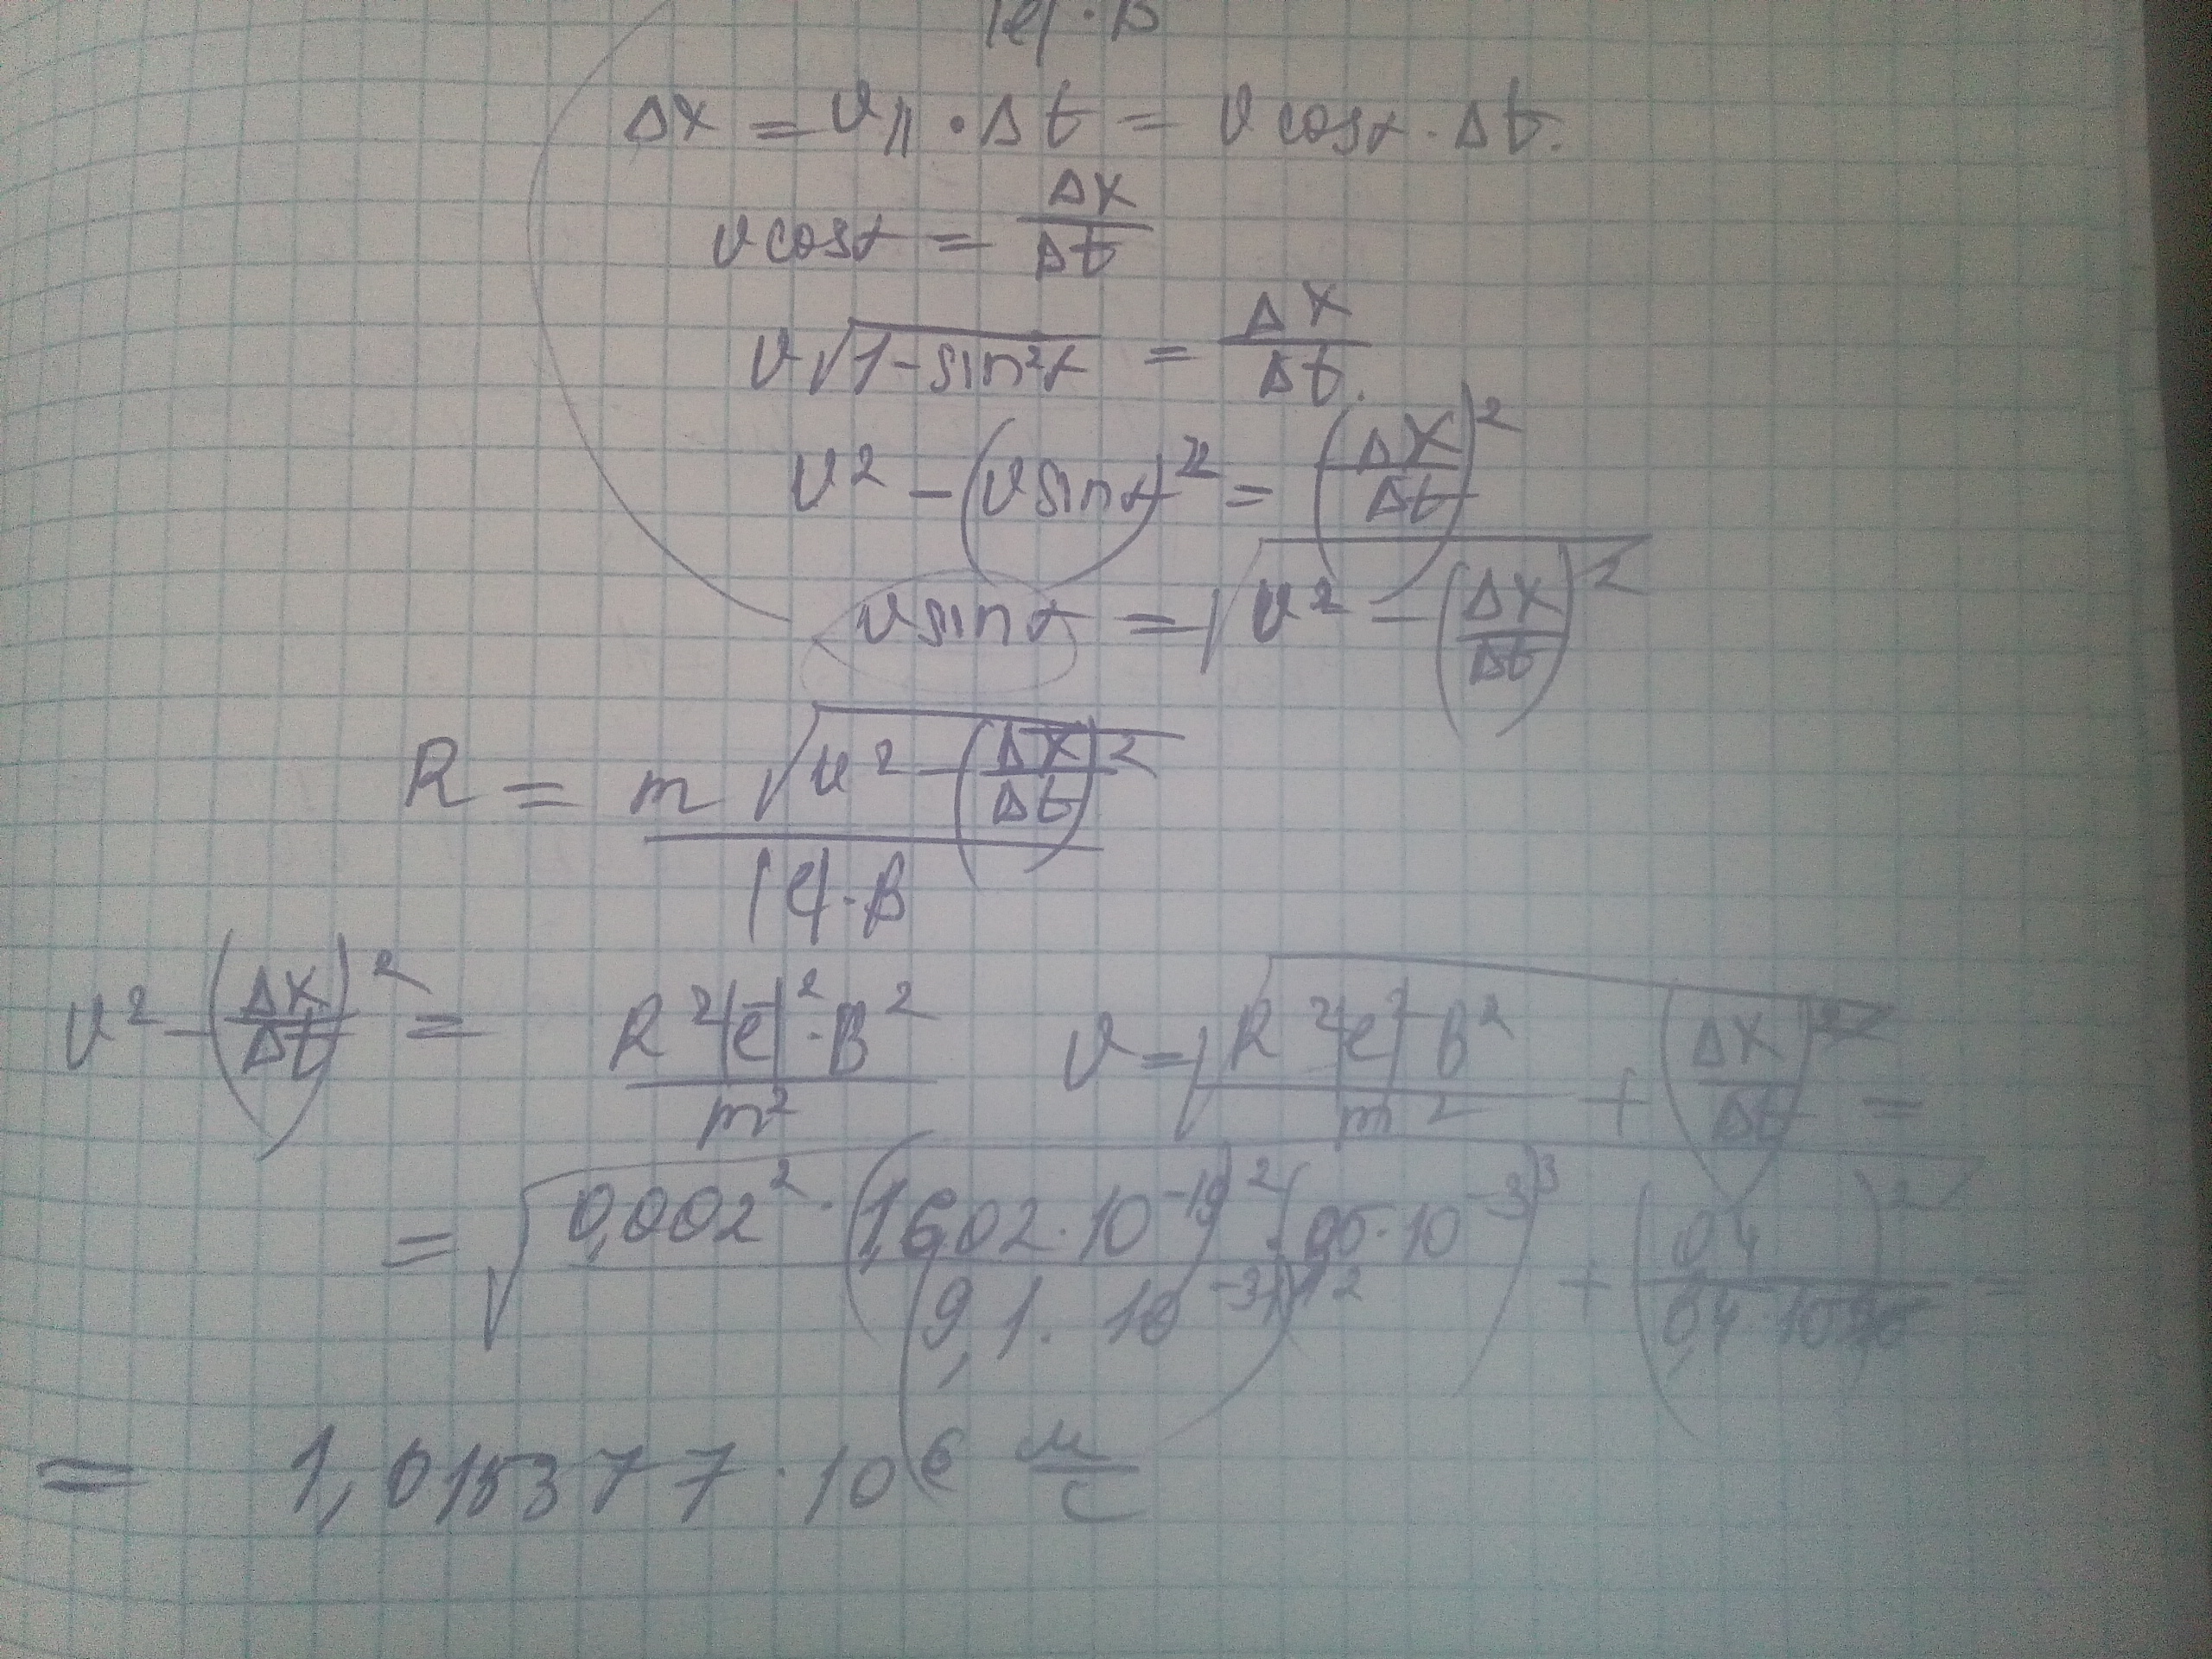 |e|·B
Δx = v∥ · Δt = v cosα · Δt.
v cosα = Δx/Δt
v√(1 - sin²α) = Δx/Δt.
v² - (v sinα)² = (Δx/Δt)²
v sinα = √(v² - (Δx/Δt)²)
R = m√(v² - (Δx/Δt)²) / |e|·B
v² - (Δx/Δt)² = R²|e|²·B²/m² v = √(R²|e|²B²/m² + (Δx/Δt)²) =
= √(0,002² · (1,602·10⁻¹⁹)² · (
(9,1 · 10⁻³¹)² + (
= 1,015377 · 10⁶ м/с